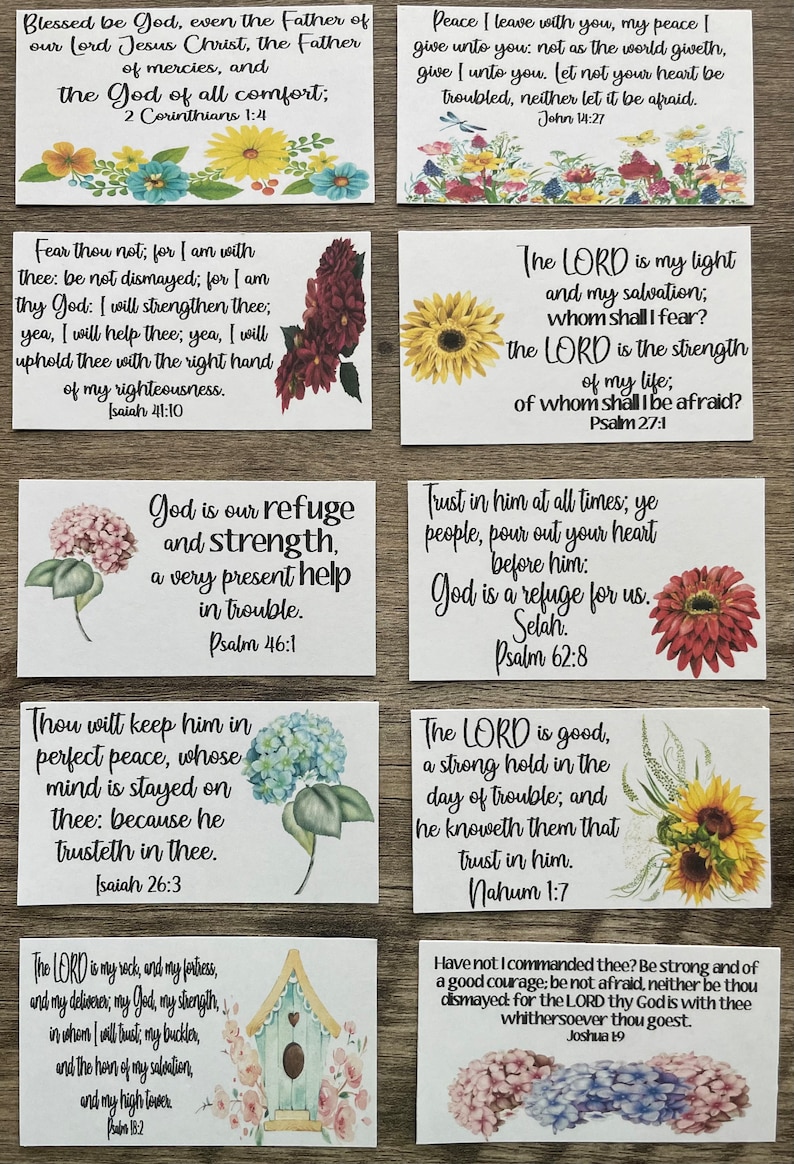 Blessed be God, even the Father of
our Lord Jesus Christ, the Father
of mercies, and
the God of all comfort;
2 Corinthians 1:4
Peace I leave with you, my peace I
give unto you: not as the world giveth,
give I unto you. Let not your heart be
troubled, neither let it be afraid.
John 14:27
Fear thou not; for I am with
thee: be not dismayed; for I am
thy God: I will strengthen thee;
yea, I will help thee; yea, I will
uphold thee with the right hand
of my righteousness.
Isaiah 41:10
The LORD is my light
and my salvation;
whom shall I fear?
the LORD is the strength
of my life;
of whom shall I be afraid?
Psalm 27:1
God is our refuge
and strength,
a very present help
in trouble.
Psalm 46:1
Trust in him at all times; ye
people, pour out your heart
before him:
God is a refuge for us.
Selah.
Psalm 62:8
Thou wilt keep him in
perfect peace, whose
mind is stayed on
thee: because he
trusteth in thee.
Isaiah 26:3
The LORD is good,
a strong hold in the
day of trouble; and
he knoweth them that
trust in him.
Nahum 1:7
The LORD is my rock, and my fortress,
and my deliverer; my God, my strength,
in whom I will trust; my buckler,
and the horn of my salvation,
and my high tower.
Psalm 18:2
Have not I commanded thee? Be strong and of
a good courage; be not afraid, neither be thou
dismayed: for the LORD thy God is with thee
whithersoever thou goest.
Joshua 1:9